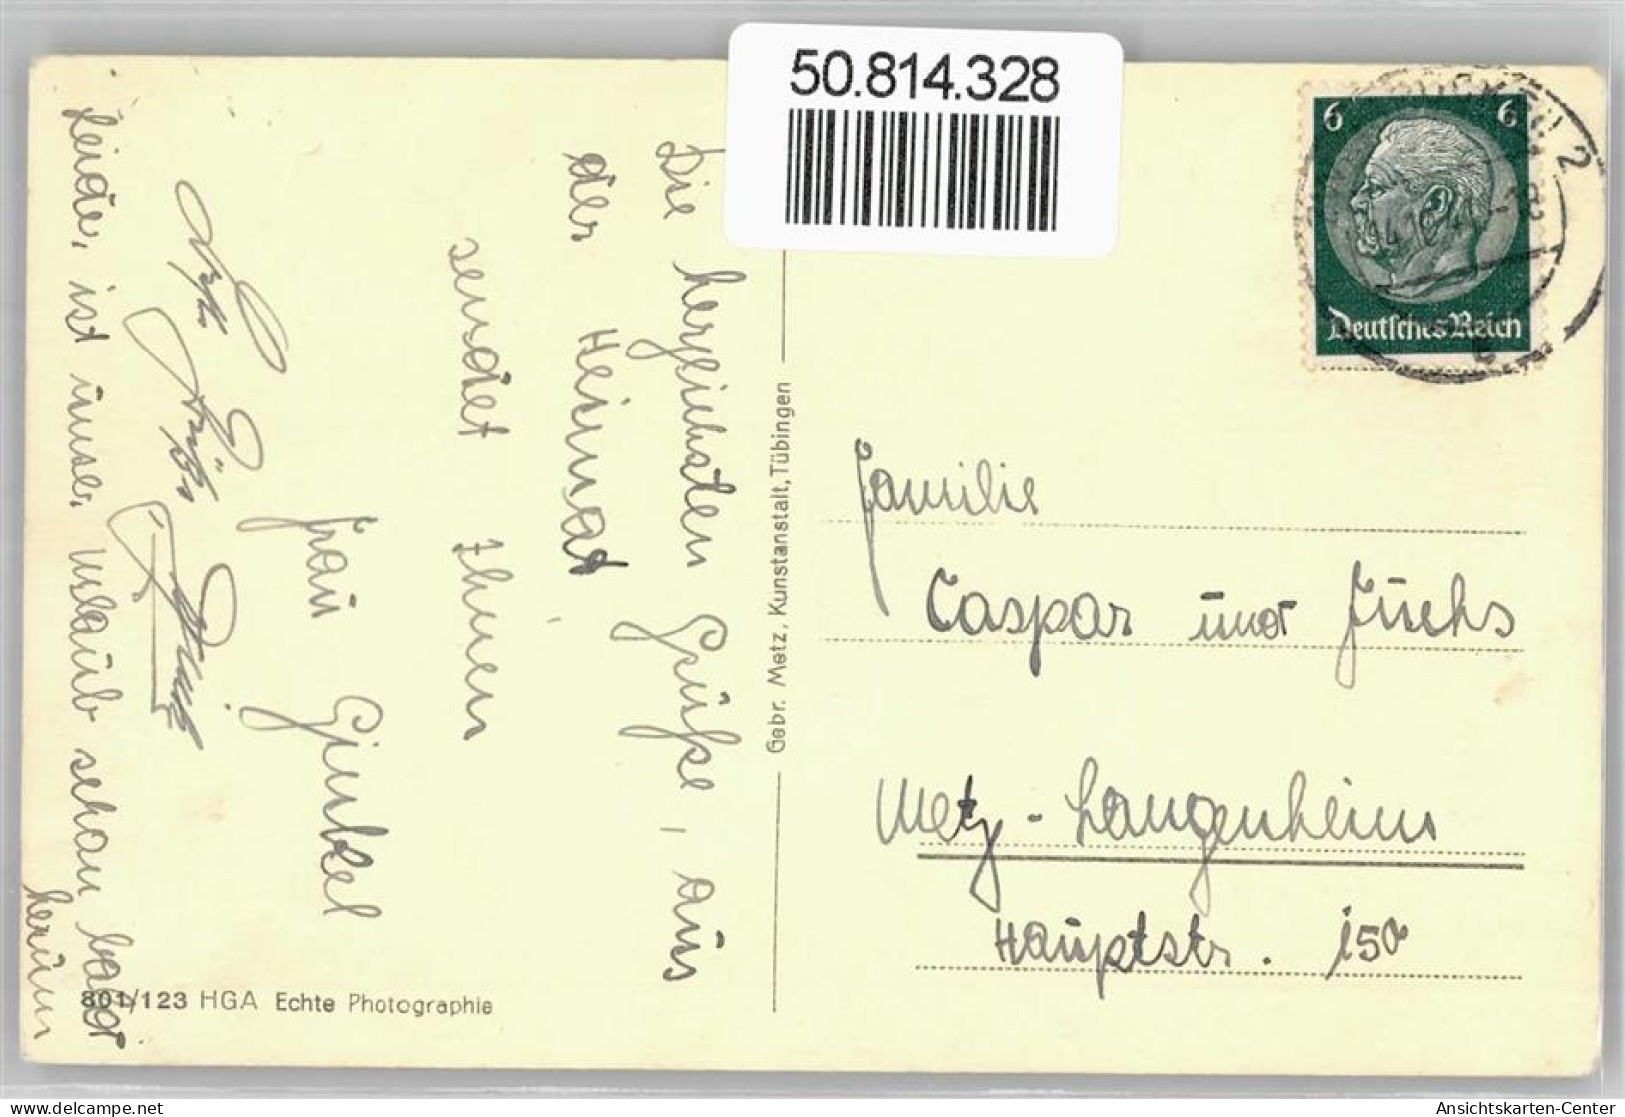 50.814.328
6 6
Deutsches Reich
2
Die herzlichsten Grüße, aus
der Heimat
sendet Ihnen
Frau Ginkel
Leider ist unser Urlaub schon bald
herum
Gebr. Metz, Kunstanstalt, Tübingen
Familie
Caspar und Fuchs
Metz-Langenheim
Hauptstr. 150
801/123 HGA Echte Photographie
Ansichtskarten-Center
delcampe.net